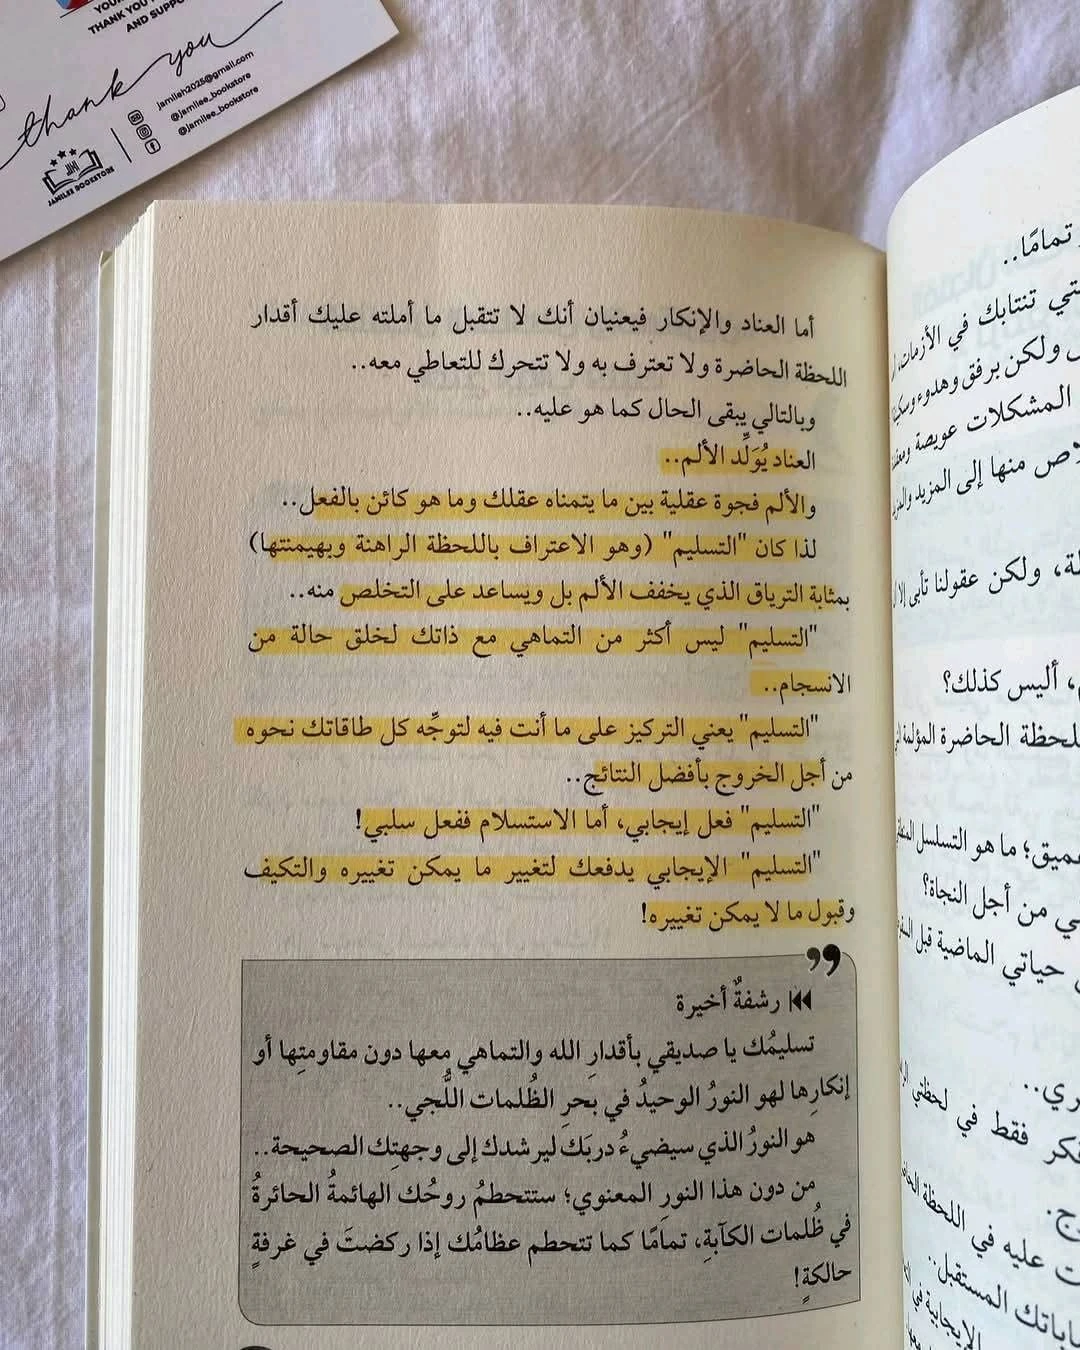 THANK YOU
AND SUPPO
thank you
jamileh2025@gmail.com
@jamilee_bookstore
@jamilee_bookstore
JAMILEE BOOKSTORE
أما العناد والإنكار فيعنيان أنك لا تتقبل ما أملته عليك أقدار
اللحظة الحاضرة ولا تعترف به ولا تتحرك للتعاطي معه..
وبالتالي يبقى الحال كما هو عليه..
العناد يُوَلِّد الألم..
والألم فجوة عقلية بين ما يتمناه عقلك وما هو كائن بالفعل..
لذا كان "التسليم" (وهو الاعتراف باللحظة الراهنة وبهيمنتها)
بمثابة الترياق الذي يخفف الألم بل ويساعد على التخلص منه..
"التسليم" ليس أكثر من التماهي مع ذاتك لخلق حالة من
الانسجام..
"التسليم" يعني التركيز على ما أنت فيه لتوجِّه كل طاقاتك نحوه
من أجل الخروج بأفضل النتائج..
"التسليم" فعل إيجابي، أما الاستسلام ففعل سلبي!
"التسليم" الإيجابي يدفعك لتغيير ما يمكن تغييره والتكيف
وقبول ما لا يمكن تغييره!
رشفةٌ أخيرة
تسليمُك يا صديقي بأقدارِ الله والتماهي معها دون مقاومتِها أو
إنكارِها لهو النورُ الوحيدُ في بحرِ الظُلمات اللُّجي..
هو النورُ الذي سيضيءُ دربَك ليرشدك إلى وجهتِك الصحيحة..
من دون هذا النورِ المعنوي؛ ستتحطمُ روحُك الهائمةُ الحائرةُ
في ظُلمات الكآبةِ، تمامًا كما تتحطم عظامُك إذا ركضتَ في غرفةٍ
حالكةٍ!
تمامًا..
تنتابك في الأزمات
ولكن برفق وهدوء
المشكلات عويصة
منها إلى المزيد
ولكن عقولنا تأبى إلا
أليس كذلك؟
الحاضرة المؤلمة
ما هو التسلسل
من أجل النجاة؟
حياتي الماضية قبل
فقط في لحظتي
عليه في اللحظة
المستقبل..
الإيجابية في